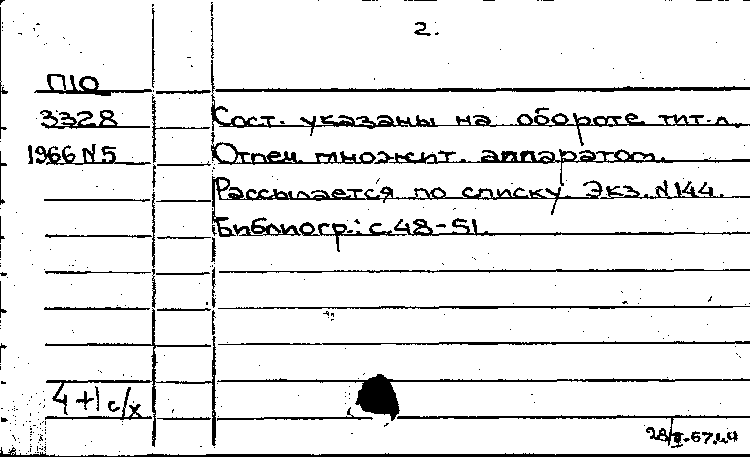 2.
П10
3328 Сост. указаны на обороте тит. л.
1966 N5 Отпеч. множит. аппаратом.
Рассылается по списку. Экз. N144.
Библиогр.: с. 48-51.
4+1 с/х
28/II-67